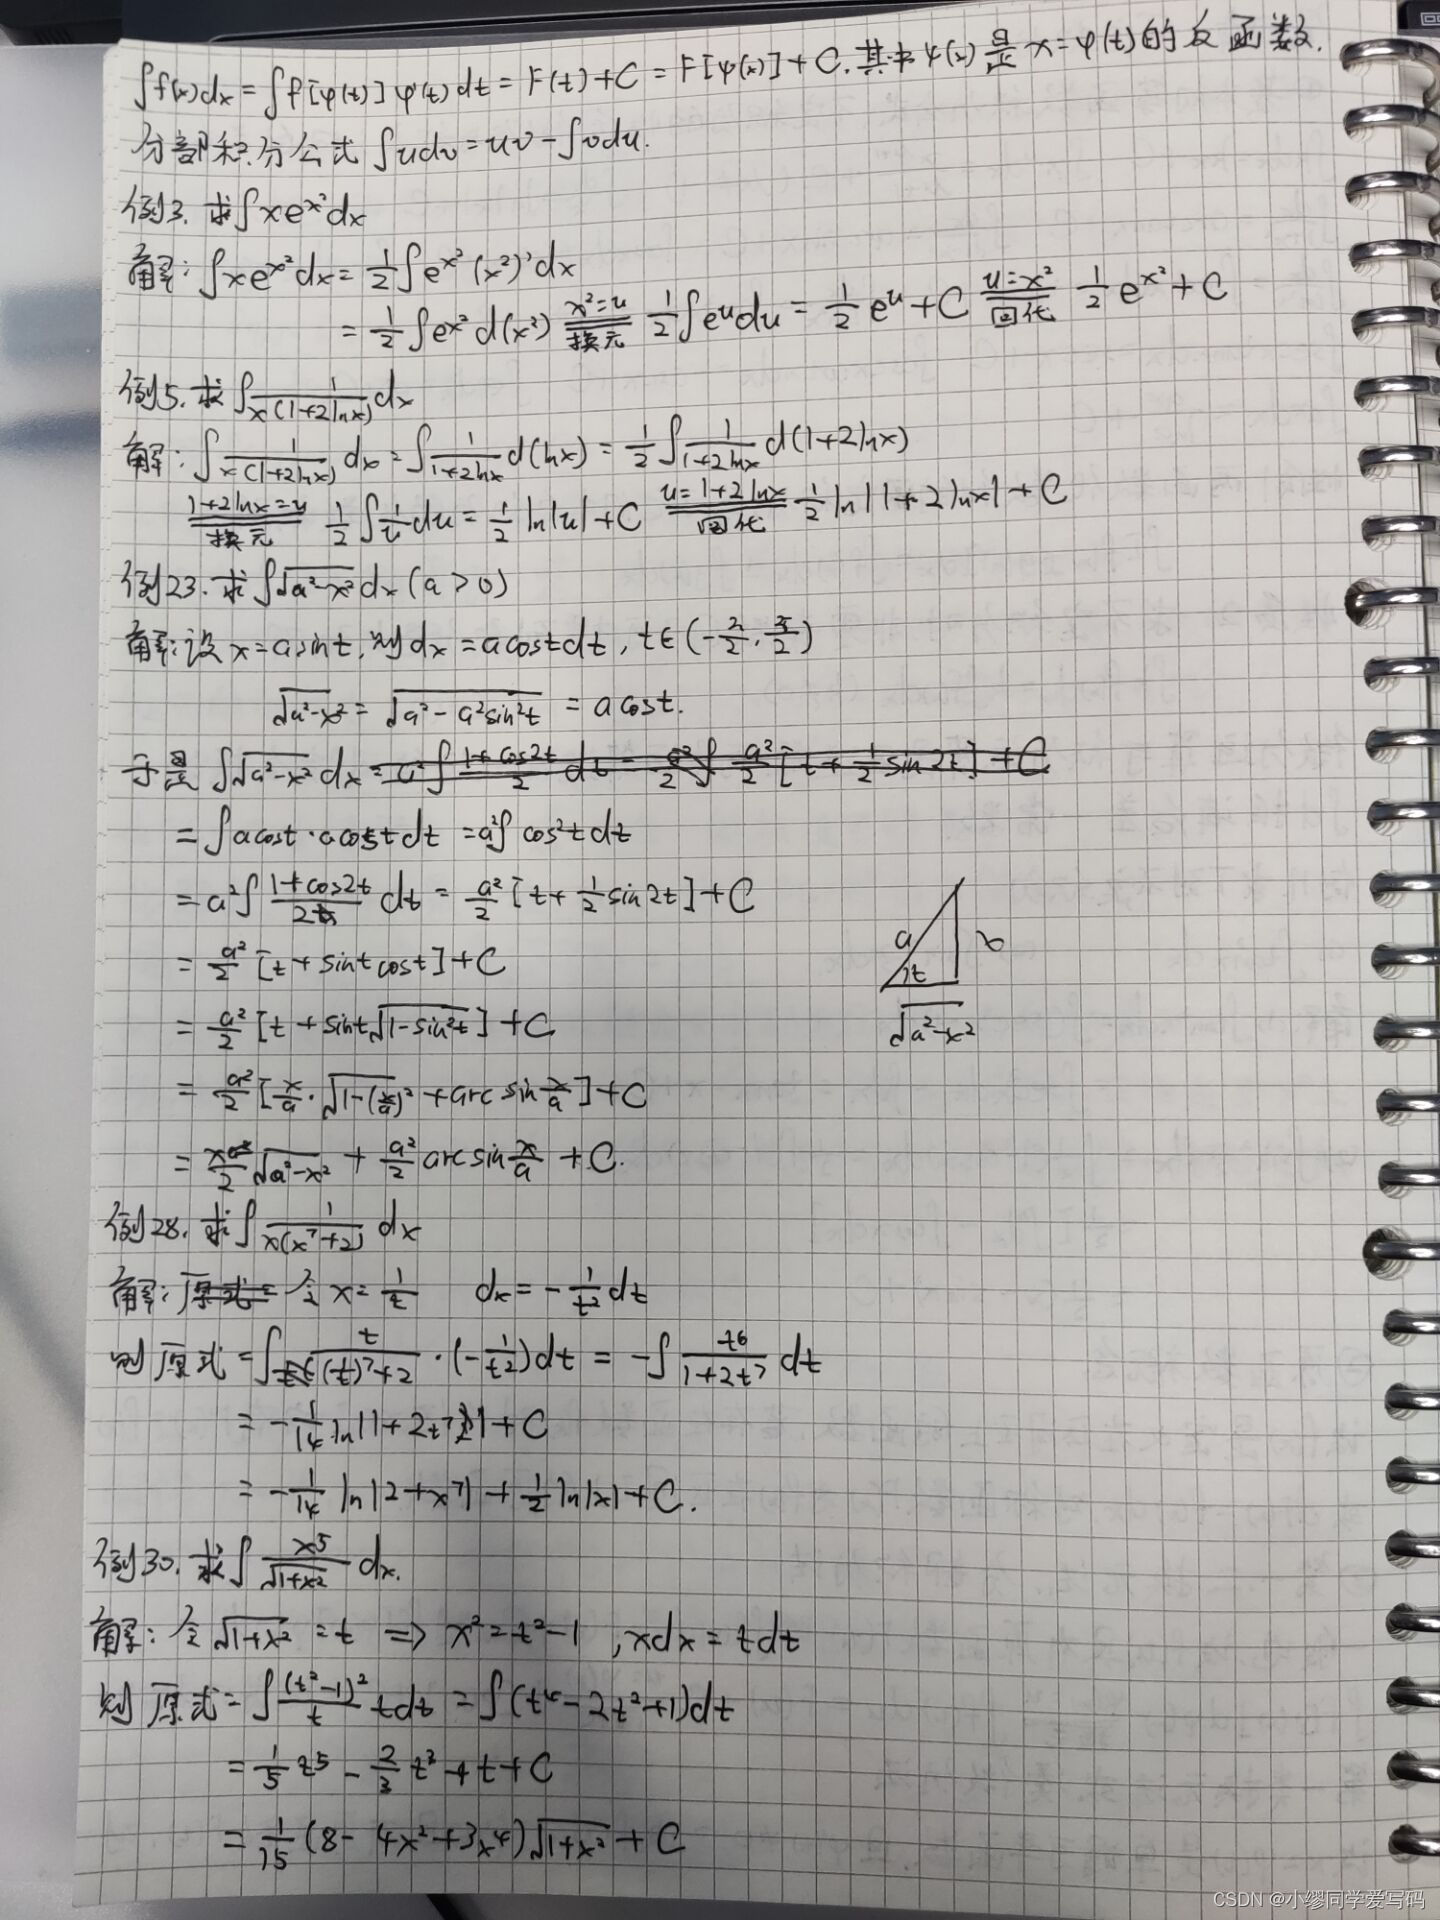 ∫f(x)dx = ∫f[φ(t)]φ'(t)dt = F(t)+C = F[ψ(x)]+C. 其中ψ(x)是x=φ(t)的反函数.
分部积分公式 ∫udv=uv-∫vdu.
例3. 求∫xe^{x²}dx
解: ∫xe^{x²}dx = 1/2 ∫e^{x²}(x²)'dx
= 1/2 ∫e^{x²}d(x²) x²=u 换元 1/2 ∫e^u du = 1/2 e^u + C u=x² 回代 1/2 e^{x²} + C
例5. 求∫1/(x(1+2lnx)) dx
解: ∫1/(x(1+2lnx)) dx = ∫1/(1+2lnx) d(lnx) = 1/2 ∫1/(1+2lnx) d(1+2lnx)
1+2lnx=u 换元 1/2 ∫1/u du = 1/2 ln|u| + C u=1+2lnx 回代 1/2 ln|1+2lnx| + C
例23. 求∫√(a²-x²) dx (a>0)
解: 设x=asint, 则dx=acostdt, t∈(-π/2, π/2)
√(a²-x²) = √(a²-a²sin²t) = acost.
于是 ∫√(a²-x²) dx
= ∫acost·acostdt = a²∫cos²tdt
= a²∫(1+cos2t)/2 dt = a²/2 [t+1/2 sin2t]+C
= a²/2 [t+sintcost]+C
= a²/2 [t+sint√(1-sin²t)]+C
= a²/2 [x/a·√(1-(x/a)²) + arcsin x/a]+C
= x/2 √(a²-x²) + a²/2 arcsin x/a + C.
a x t
√(a²-x²)
例28. 求∫1/(x(x⁷+2)) dx
解: 令x=1/t dx=-1/t² dt
则原式=∫t/((1/t)⁷+2)·(-1/t²)dt = -∫t⁶/(1+2t⁷) dt
= -1/14 ln|1+2t⁷|+C
= -1/14 ln|2+x⁷| + 1/2 ln|x| + C.
例30. 求∫x⁵/√(1+x²) dx.
解: 令√(1+x²)=t ⇒ x²=t²-1, xdx=tdt
则原式=∫(t²-1)²/t tdt = ∫(t⁴-2t²+1)dt
= 1/5 t⁵ - 2/3 t³ + t + C
= 1/15 (8-4x²+3x⁴)√(1+x²) + C
CSDN @小缪同学爱写码